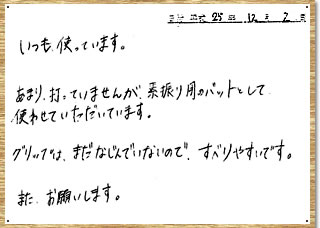 平成25年12月2日
いつも、使っています。
あまり、打っていませんが、素振り用のバットとして
使わせていただいています。
グリップは、まだなじんでいないので、すべりやすいです。
また、お願いします。